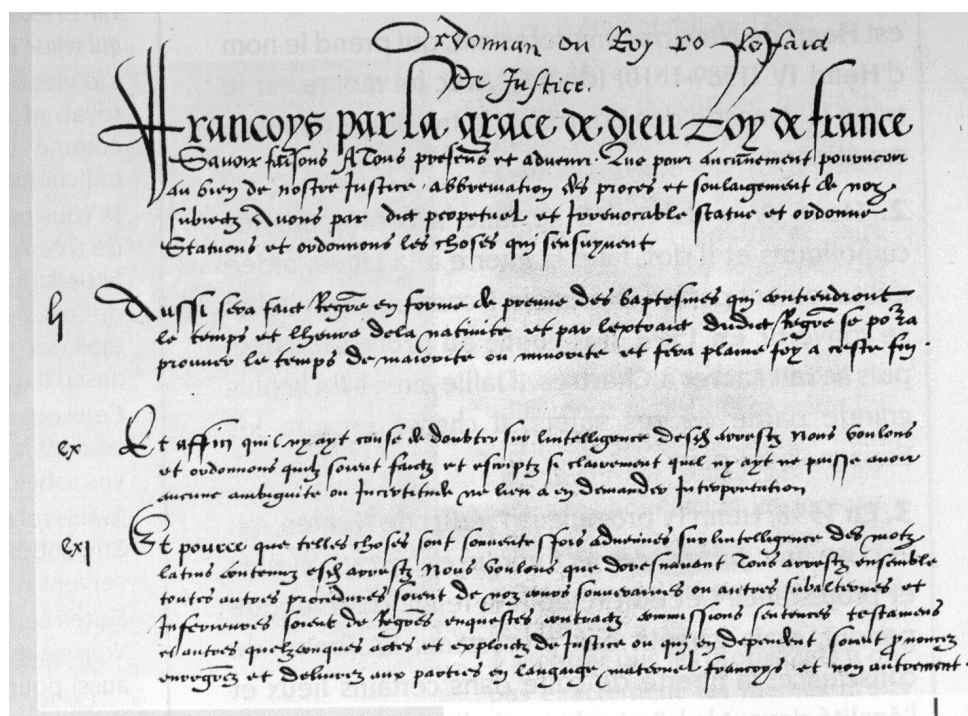 Ordonnan du Roy
De Justice.
Francoys par la grace de dieu Roy de france
Savoir faisons A Tous presens et advenir. Que pour aucunement pourveoir
au bien de nostre Justice, abbreviation des proces et soulaigement de noz
subiectz Avons par dict perpetuel et Irrevocable statue et ordonne
Statuons et ordonnons les choses qui sensuyvent
lj Aussi sera faict Regre en forme de preuve des baptesmes qui contiendront
le temps et lheure dela nativite et par lextraict dudict Regre se porra
prouver le temps de maiorite ou minorite et fera plaine foy a ceste fin
cx Et affin quil ny ayt cause de doubter sur lintelligence desd arrestz Nous voulons
et ordonnons quilz soient faictz et escriptz si clairement quil ny ayt ne puisse avoir
aucune ambiguite ou Incertitude ne lieu a en demander Interpretation
cxj Et pource que telles choses sont souventesfois advenues sur lintelligence des motz
latins contenuz esd arrestz Nous voulons que doresnavant tous arrestz ensemble
toutes autres procedures soient de noz cours souveraines ou autres subalternes et
Inferieures soient de Regres enquestes contractz commissions sentences testamens
et autres quelzconques actes et exploictz de Justice ou qui en deppendent soient prononcez
enregrez et delivrez aux parties en langage maternel francoys et non autrement